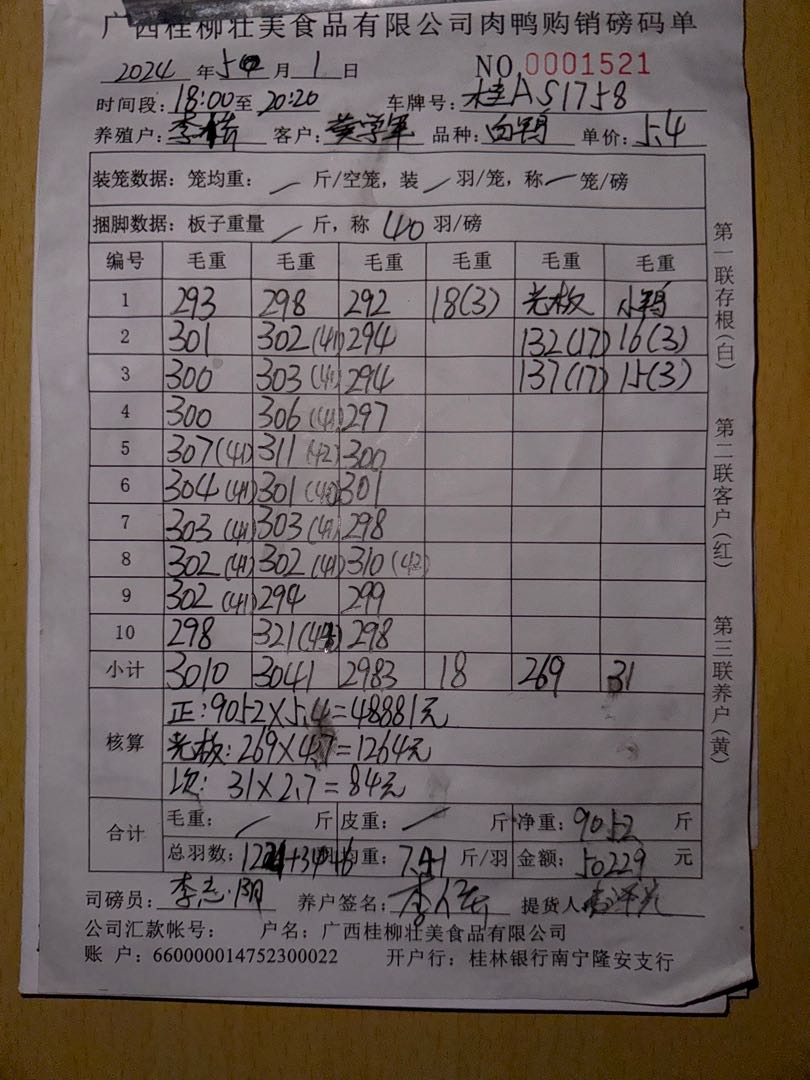 广西桂柳壮美食品有限公司肉鸭购销磅码单
2024 年 5 月 1 日 NO 0001521
时间段: 18:00 至 20:20 车牌号: 桂AS1758
养殖户: 李 客户: 黄学军 品种: 白鸭 单价: 5.4
装笼数据: 笼均重: / 斤/空笼, 装 / 羽/笼, 称 / 笼/磅
捆脚数据: 板子重量 / 斤, 称 40 羽/磅
编号 毛重 毛重 毛重 毛重 毛重 毛重
1 293 298 292 18(3) 光板 小鸭
2 301 302(41) 294 132(17) 16(3)
3 300 303(41) 294 137(17) 15(3)
4 300 306(41) 297
5 307(41) 311(42) 300
6 304(41) 301(40) 301
7 303(41) 303(41) 298
8 302(41) 302(41) 310(42)
9 302(41) 294 299
10 298 321 298
小计 3010 3041 2983 18 269 31
核算
正: 9052×5.4=48881元
光板: 269×4.7=1264元
次: 31×2.7=84元
合计
毛重: / 斤 皮重: / 斤 净重: 9052 斤
总羽数: 均重: 7.41 斤/羽 金额: 50229 元
司磅员: 李志阳 养户签名: 李 提货人
公司汇款帐号: 户名: 广西桂柳壮美食品有限公司
账 户: 660000014752300022 开户行: 桂林银行南宁隆安支行
第一联存根(白)
第二联客户(红)
第三联养户(黄)